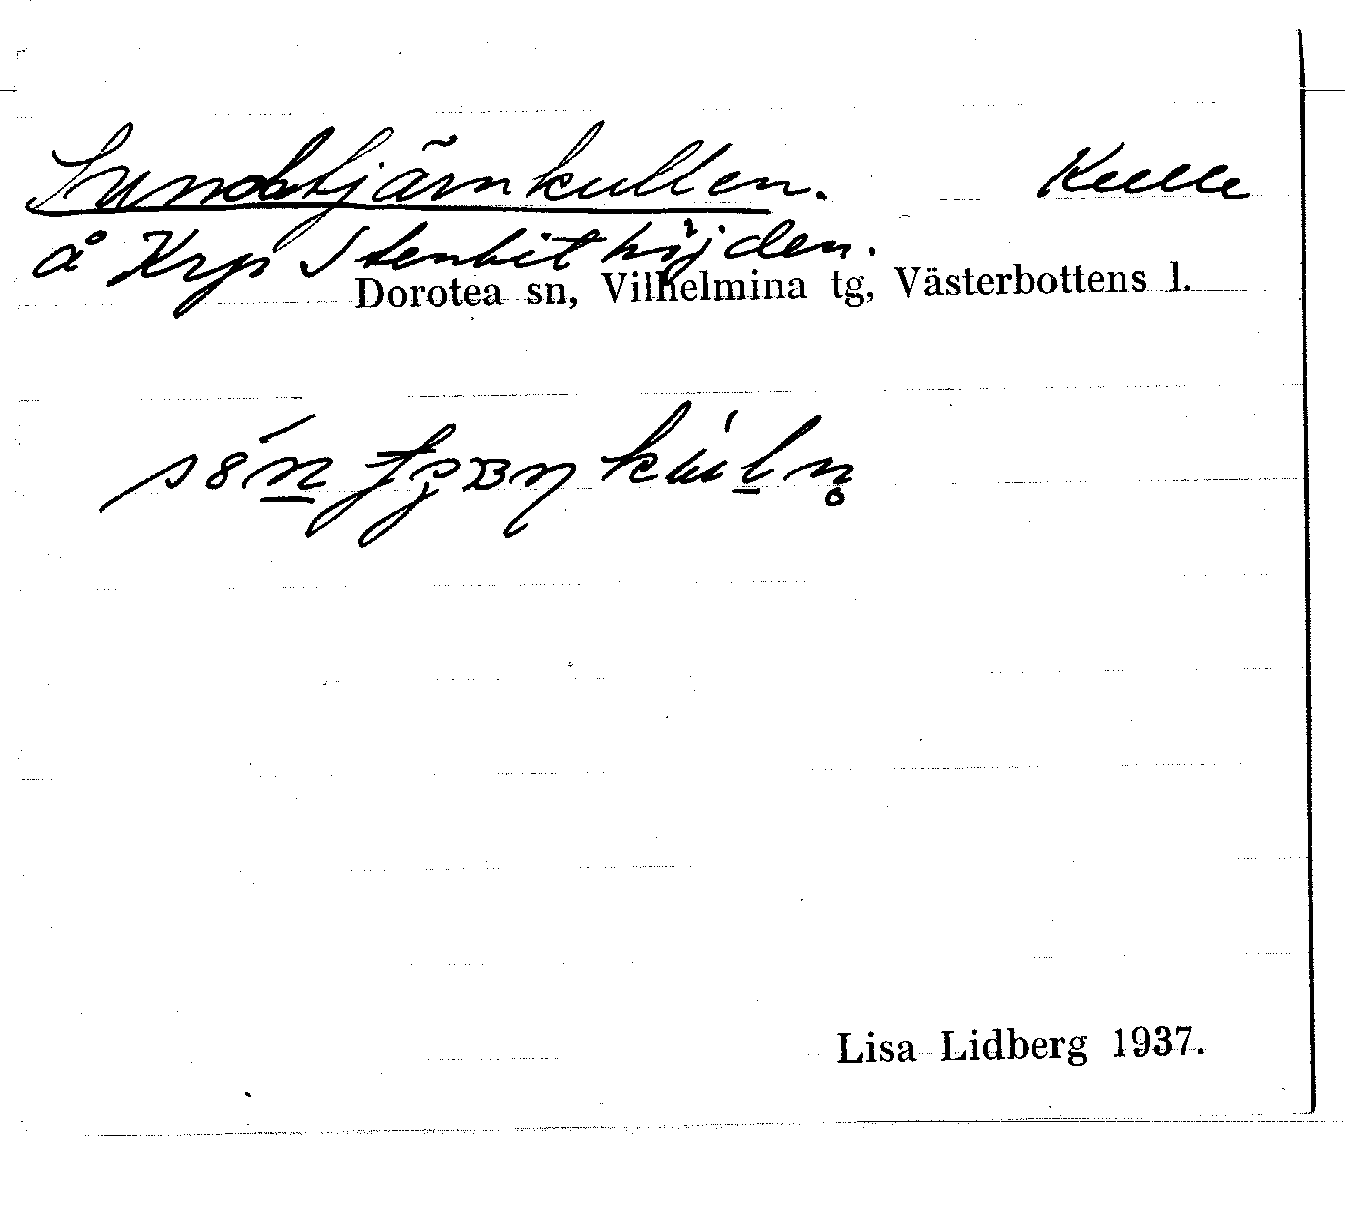 Sundtjärnkullen. Kulle
å Krp Stenbithöjden.
Dorotea sn, Vilhelmina tg, Västerbottens l.
Lisa Lidberg 1937.